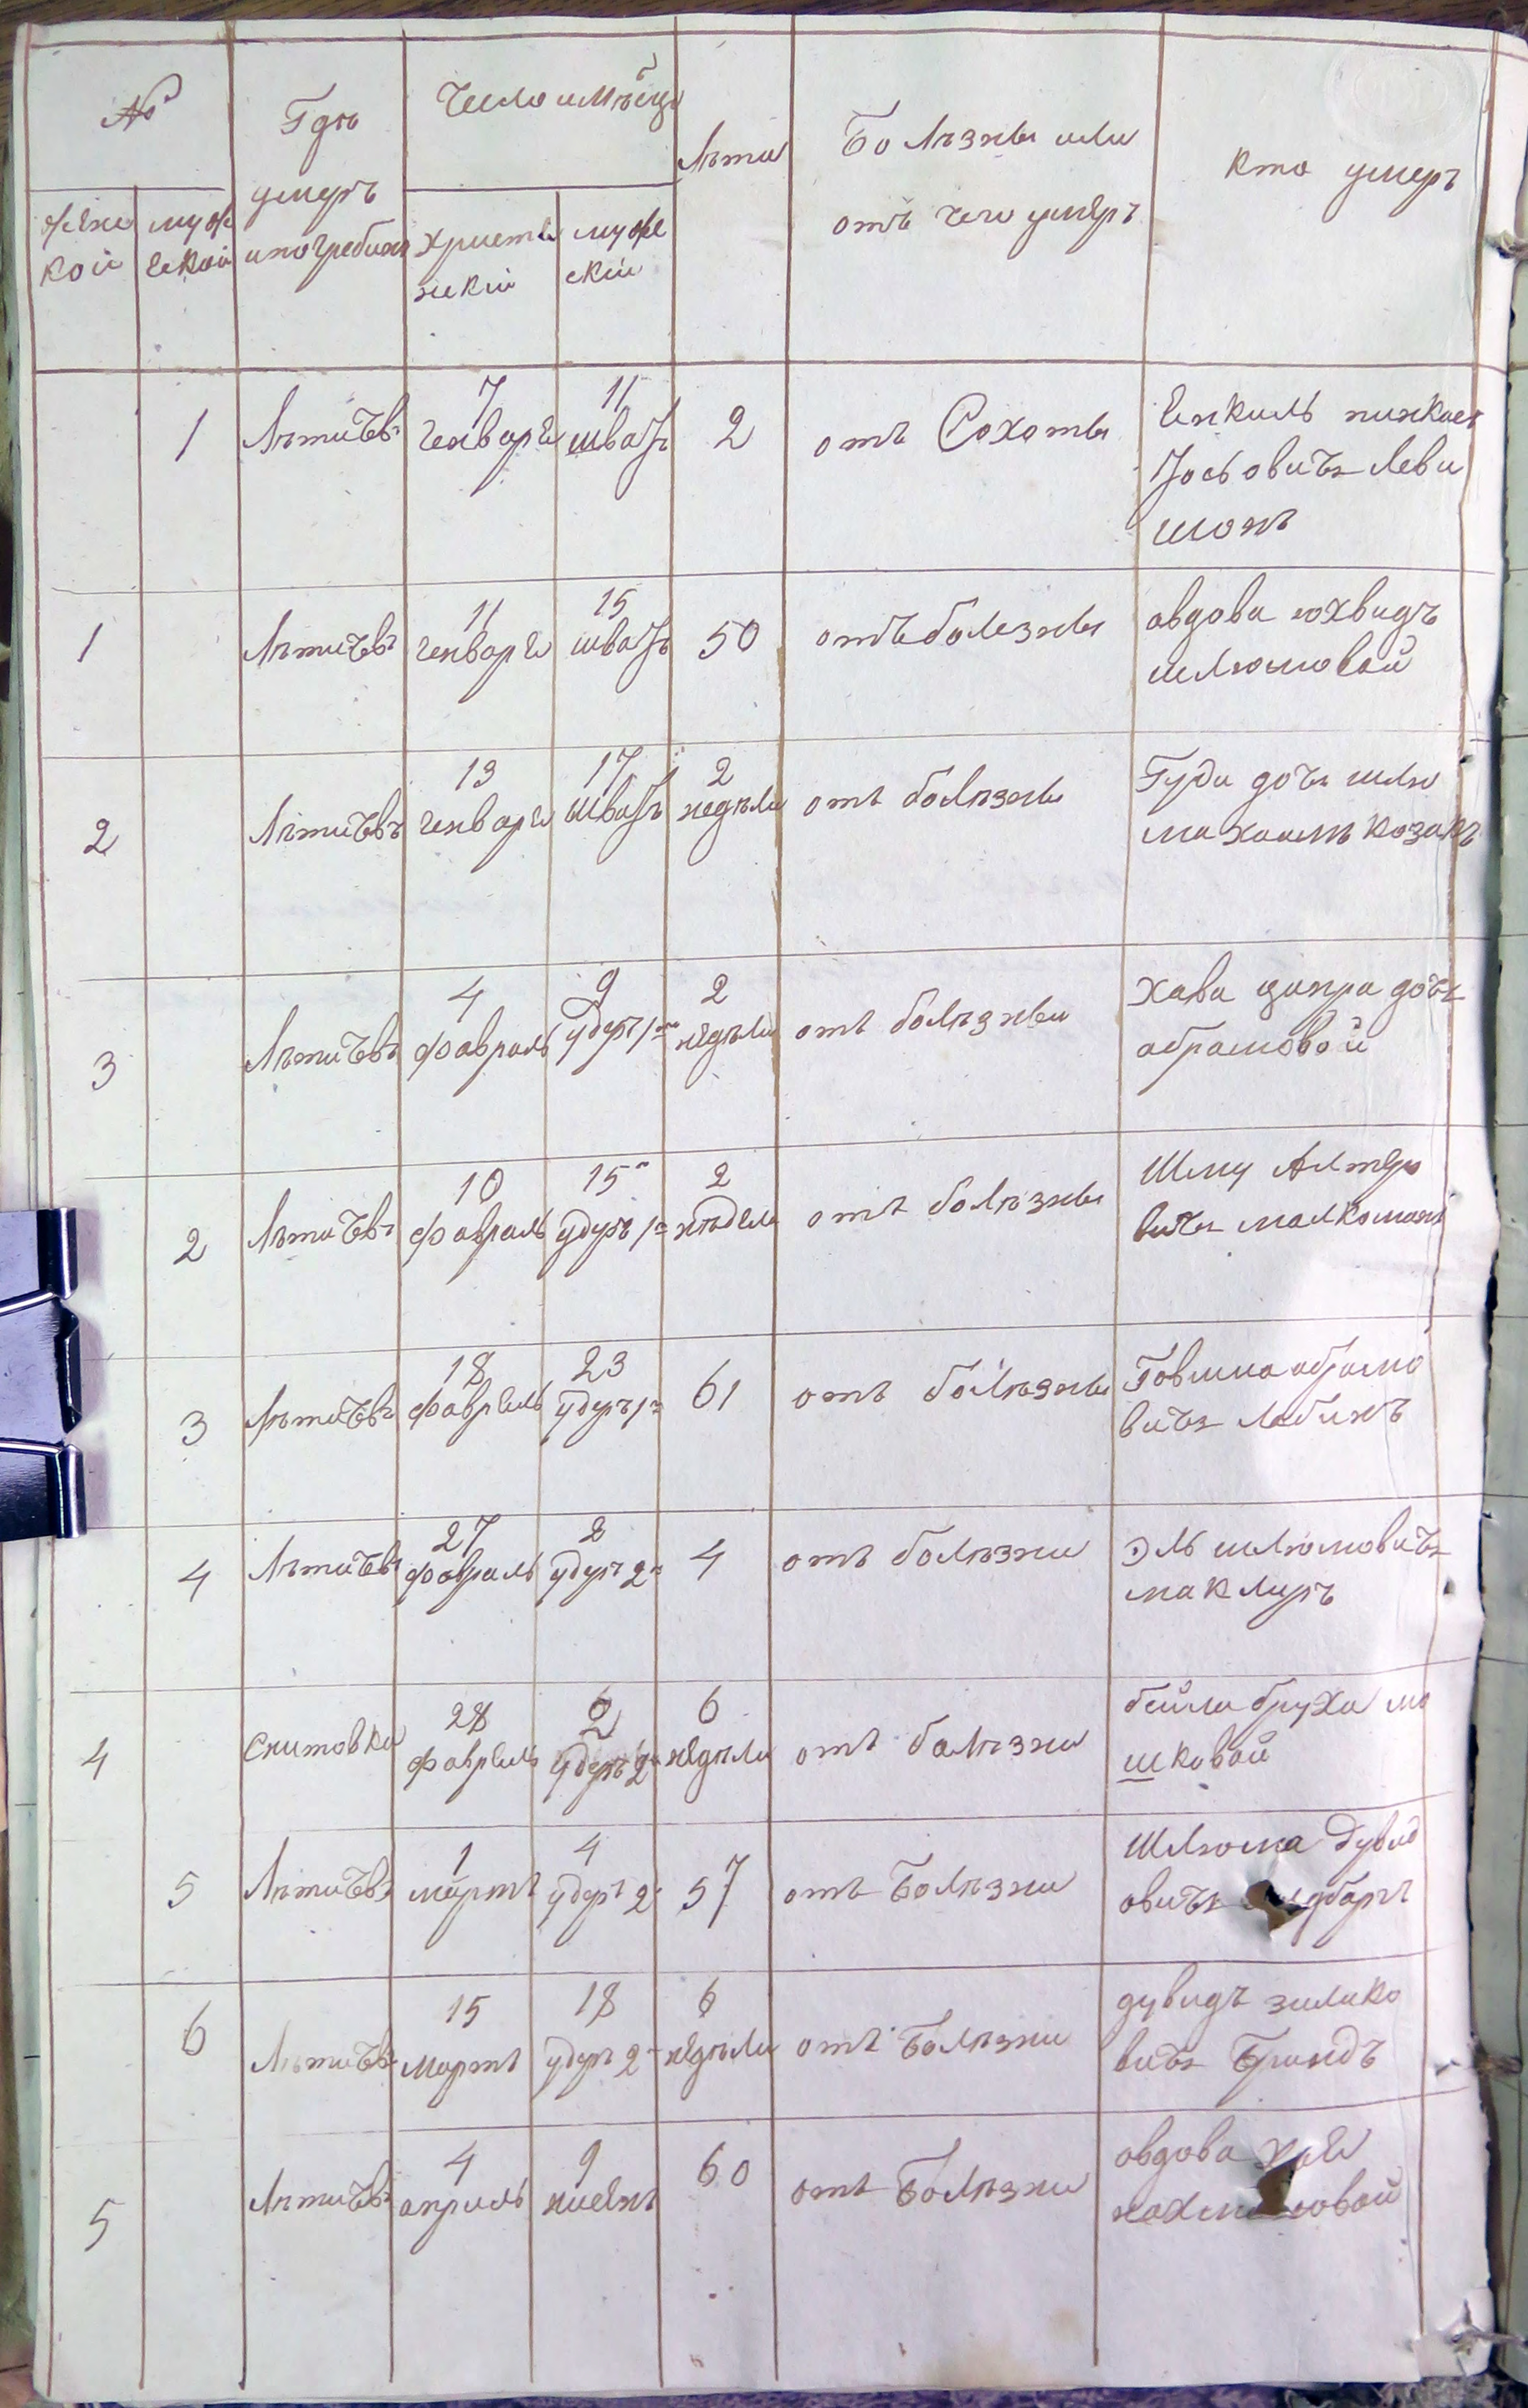 №
Гдѣ
умеръ
и погребенъ
Число и мѣсяцъ
Лѣта
Болѣзнь или
отъ чего умеръ
Кто умеръ
женс
кой
муже
ской
христи
нскій
муже
скій
1 Лѣтичевъ 7 генваря 11 шватъ 2 отъ Сохоты Енкиль пинкас
Іосьовичъ Леви
шонъ
1 Лѣтичевъ 11 генваря 15 шватъ 50 отъ болезны овдова юхвидъ
шлюмовай
2 Лѣтичевъ 13 генваря 17 шватъ 2 недѣли отъ болѣзны Гуда дочъ шлю
ма хаимъ козакъ
3 Лѣтичевъ 4 февраль 9 удеръ 1 2 недѣли отъ болѣзны Хава ципра дочъ
абрамовой
2 Лѣтичевъ 10 февраль 15 удеръ 1 2 нѣдели отъ болѣзны Шму Алтеро
вичъ малкоманъ
3 Лѣтичевъ 18 февраль 23 удеръ 1 61 отъ болѣзны Говшиа абрамо
вичъ лабинъ
4 Лѣтичевъ 27 февраль 2 удеръ 2 4 отъ болѣзни Эль шлюмовичъ
маклиръ
4 Снитовка 28 февраль 2 удеръ 2 6 недѣли отъ болѣзни бейла бруха мо
шковай
5 Лѣтичевъ 1 мартъ 4 удеръ 2 57 отъ Болѣзни Шлюма Дувид
овичъ
6 Лѣтичевъ 15 мартъ 18 удеръ 2 6 недѣли отъ Болѣзни дувидъ зилико
вичъ Бриндъ
5 Лѣтичевъ 4 априль 9 нисенъ 60 отъ Болѣзни овдова